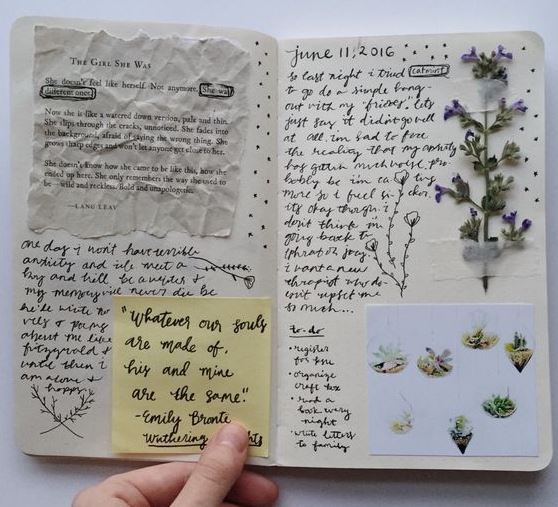 THE GIRL SHE WAS
She doesn't feel like herself. Not anymore. She was
different once.
Now she is like a watered down version, pale and thin.
She slips through the cracks, unnoticed. She fades into
the background, afraid of saying the wrong thing. She
grows sharp edges and won't let anyone get close to her.
She doesn't know how she came to be like this, how she
ended up here. She only remembers the way she used to
be—wild and reckless. Bold and unapologetic.
—LANG LEAV
one day i won't have terrible
anxiety and i'll meet a
boy and he'll be a writer &
my memory will never die bc
he'll write
& poems
about me like
fitzgerald &
until then i
am alone &
happy.
"Whatever our souls
are made of,
his and mine
are the same."
-Emily Bronte
Wuthering
june 11, 2016
so last night i tried catmint
to go do a simple hang-
out with my "friends", lets
just say it didn't go well
at all. im bad to face
the reality that my anxiety
has gotten much worse, pro-
bably bc im
more so i feel
its okay though i
don't think im
going back to
i want a new
therapist who do-
esn't upset me
so much...
to-do
• register
for
• organize
craft box
• read a
book every
night
• write letters
to family